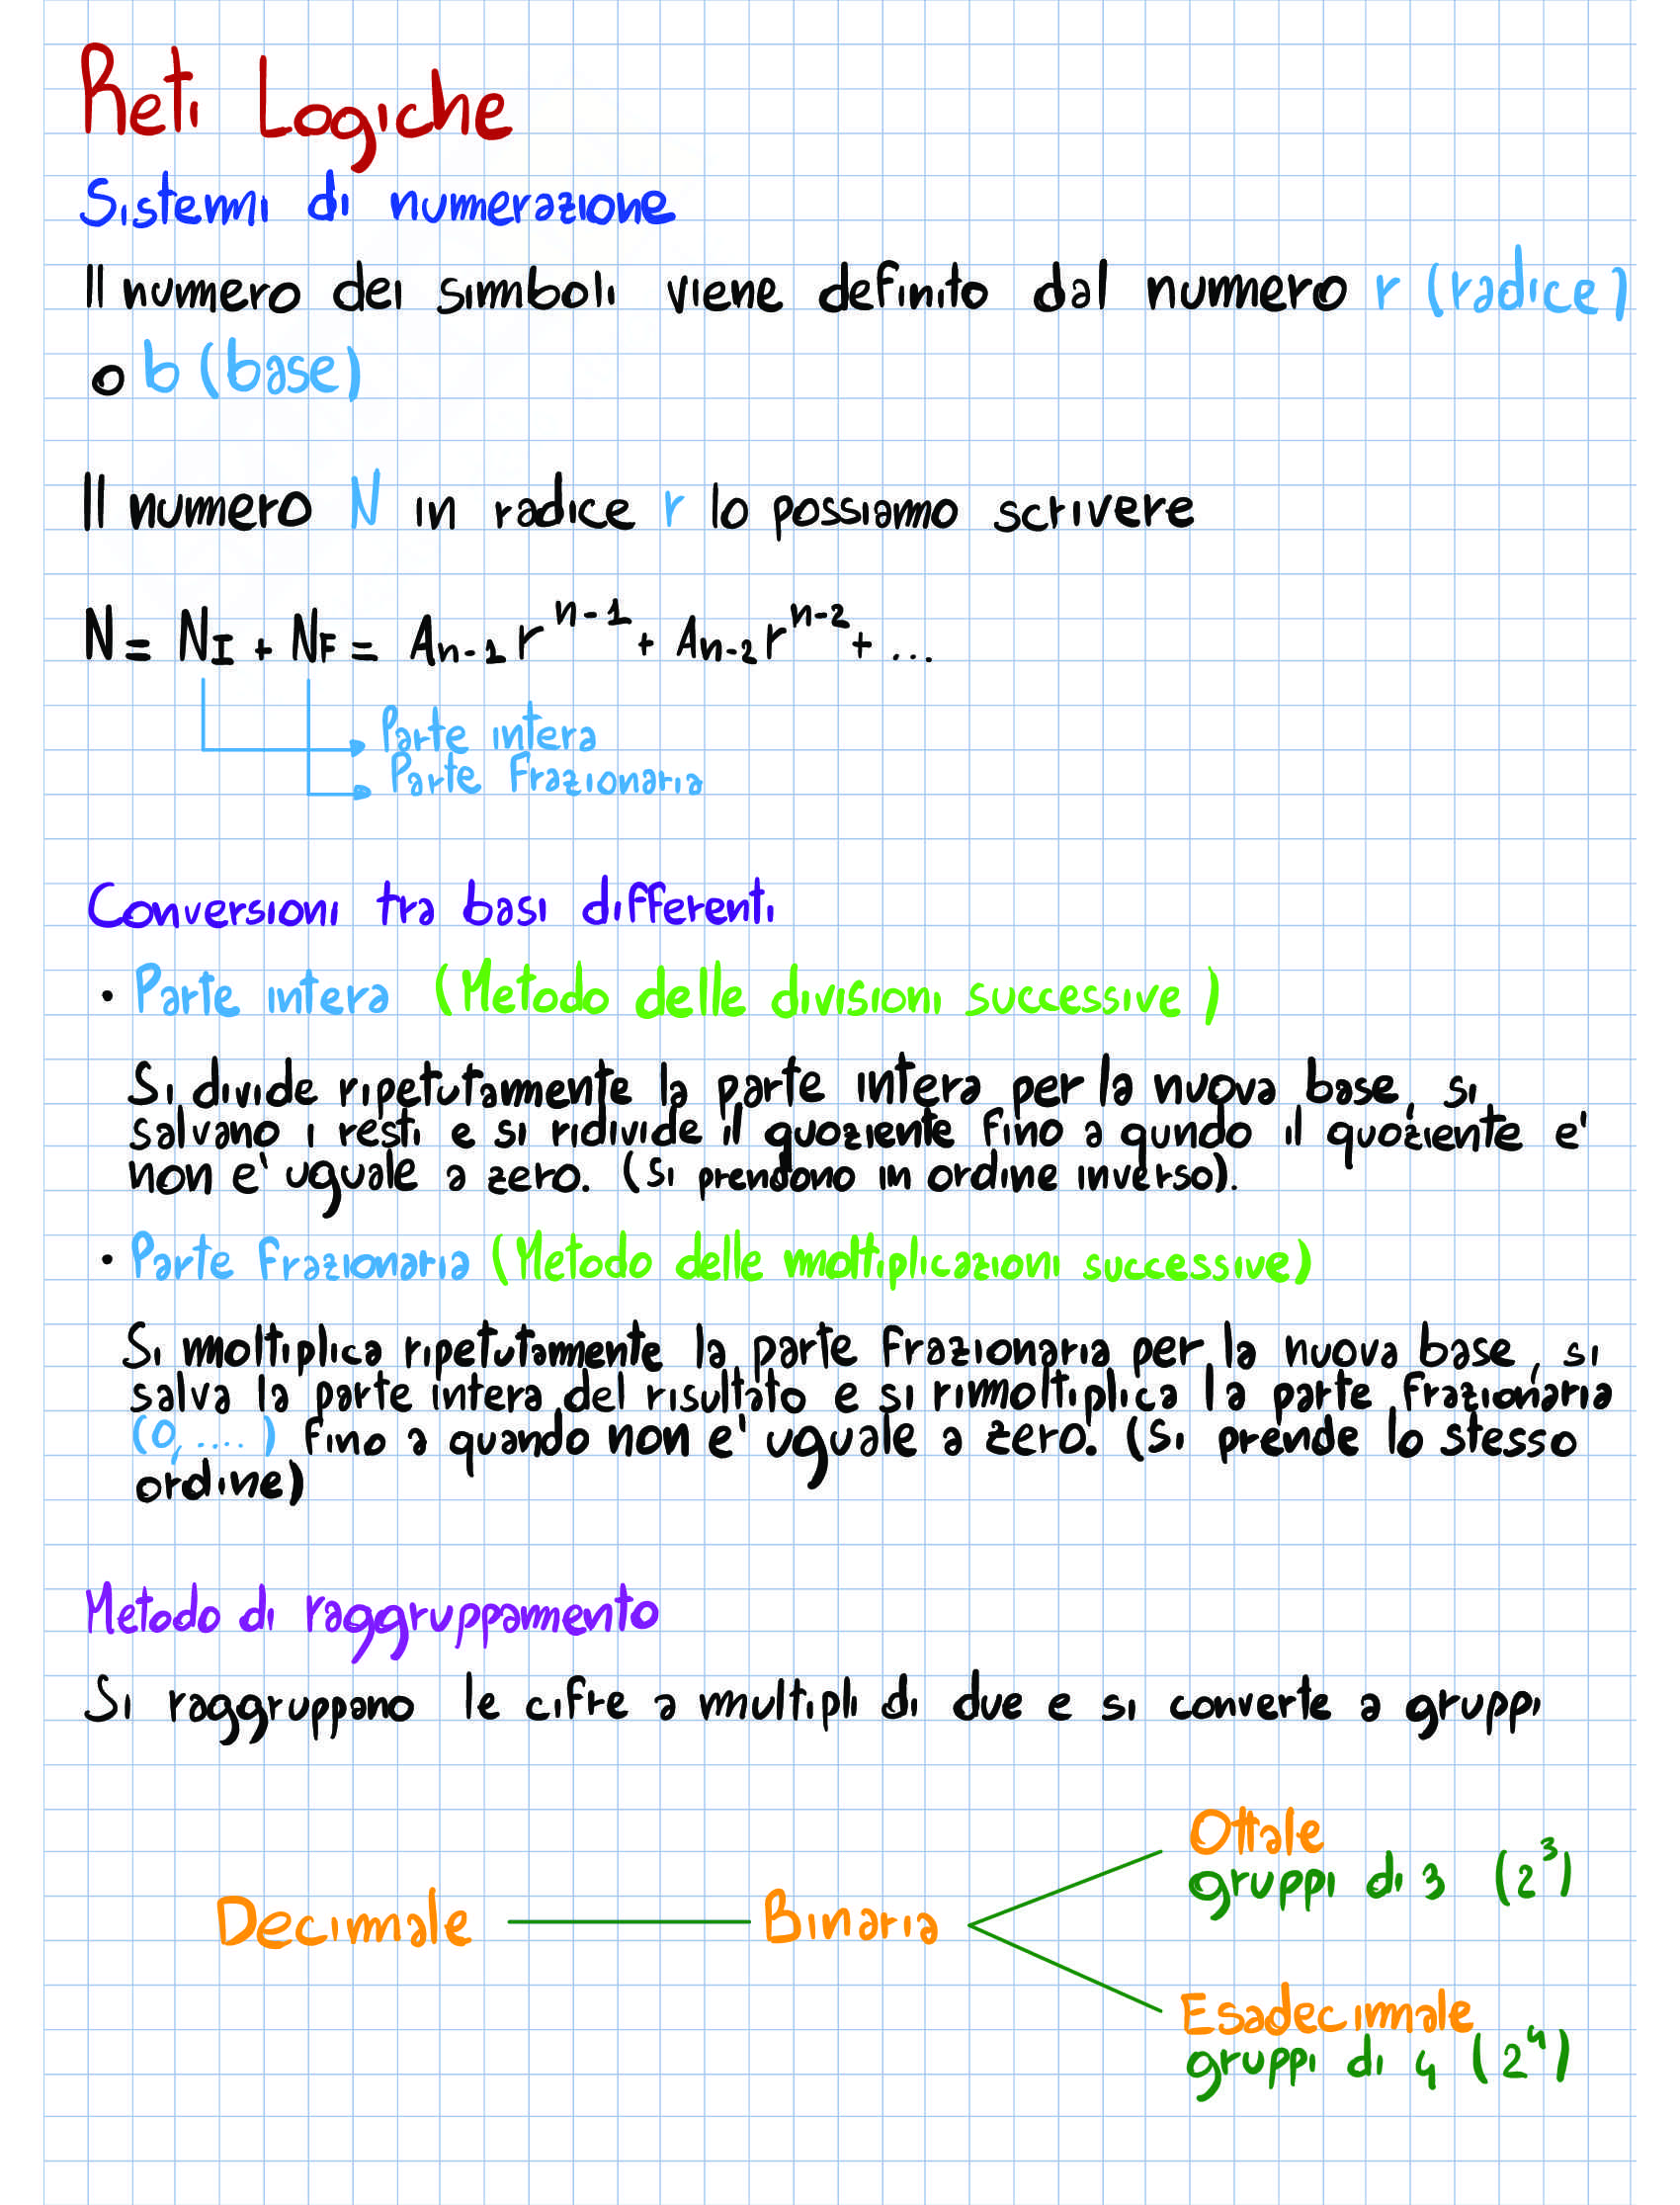 Reti Logiche
Sistemi di numerazione
Il numero dei simboli viene definito dal numero r (radice)
o b (base)
Il numero N in radice r lo possiamo scrivere
N = N_I + N_F = A_{n-1} r^{n-1} + A_{n-2} r^{n-2} + ...
Parte intera
Parte Frazionaria
Conversioni tra basi differenti
· Parte intera (Metodo delle divisioni successive)
Si divide ripetutamente la parte intera per la nuova base, si
salvano i resti e si ridivide il quoziente fino a qundo il quoziente e'
non e' uguale a zero. (Si prendono in ordine inverso).
· Parte frazionaria (Metodo delle moltiplicazioni successive)
Si moltiplica ripetutamente la parte frazionaria per la nuova base, si
salva la parte intera del risultato e si rimoltiplica la parte frazionaria
(0, ....) fino a quando non e' uguale a zero. (Si prende lo stesso
ordine)
Metodo di raggruppamento
Si raggruppano le cifre a multipli di due e si converte a gruppi
Ottale
gruppi di 3 (2^3)
Decimale Binaria
Esadecimale
gruppi di 4 (2^4)